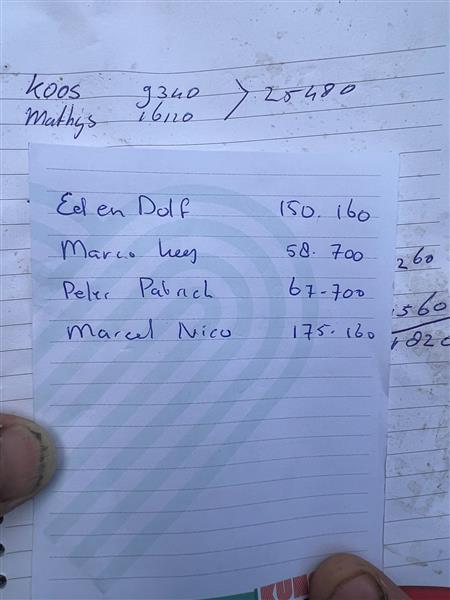 Koos 9340 > 25480
Mathijs 16120
Ed en Dolf 150.160
Marco 58.700
Peter Patrick 67-700
Marcel Nico 175.160
260
560
820